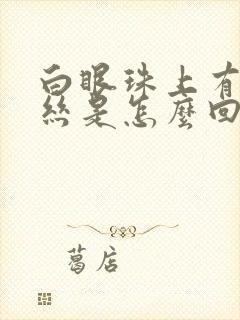 白眼珠上有
絲是怎麼回
葛店